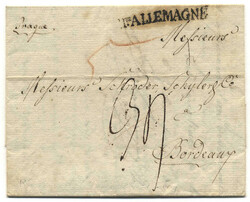 Prague.
F.ALLEMAGNE
Messieurs
Messieurs Schröder Schÿler & Co
a
Bordeaux